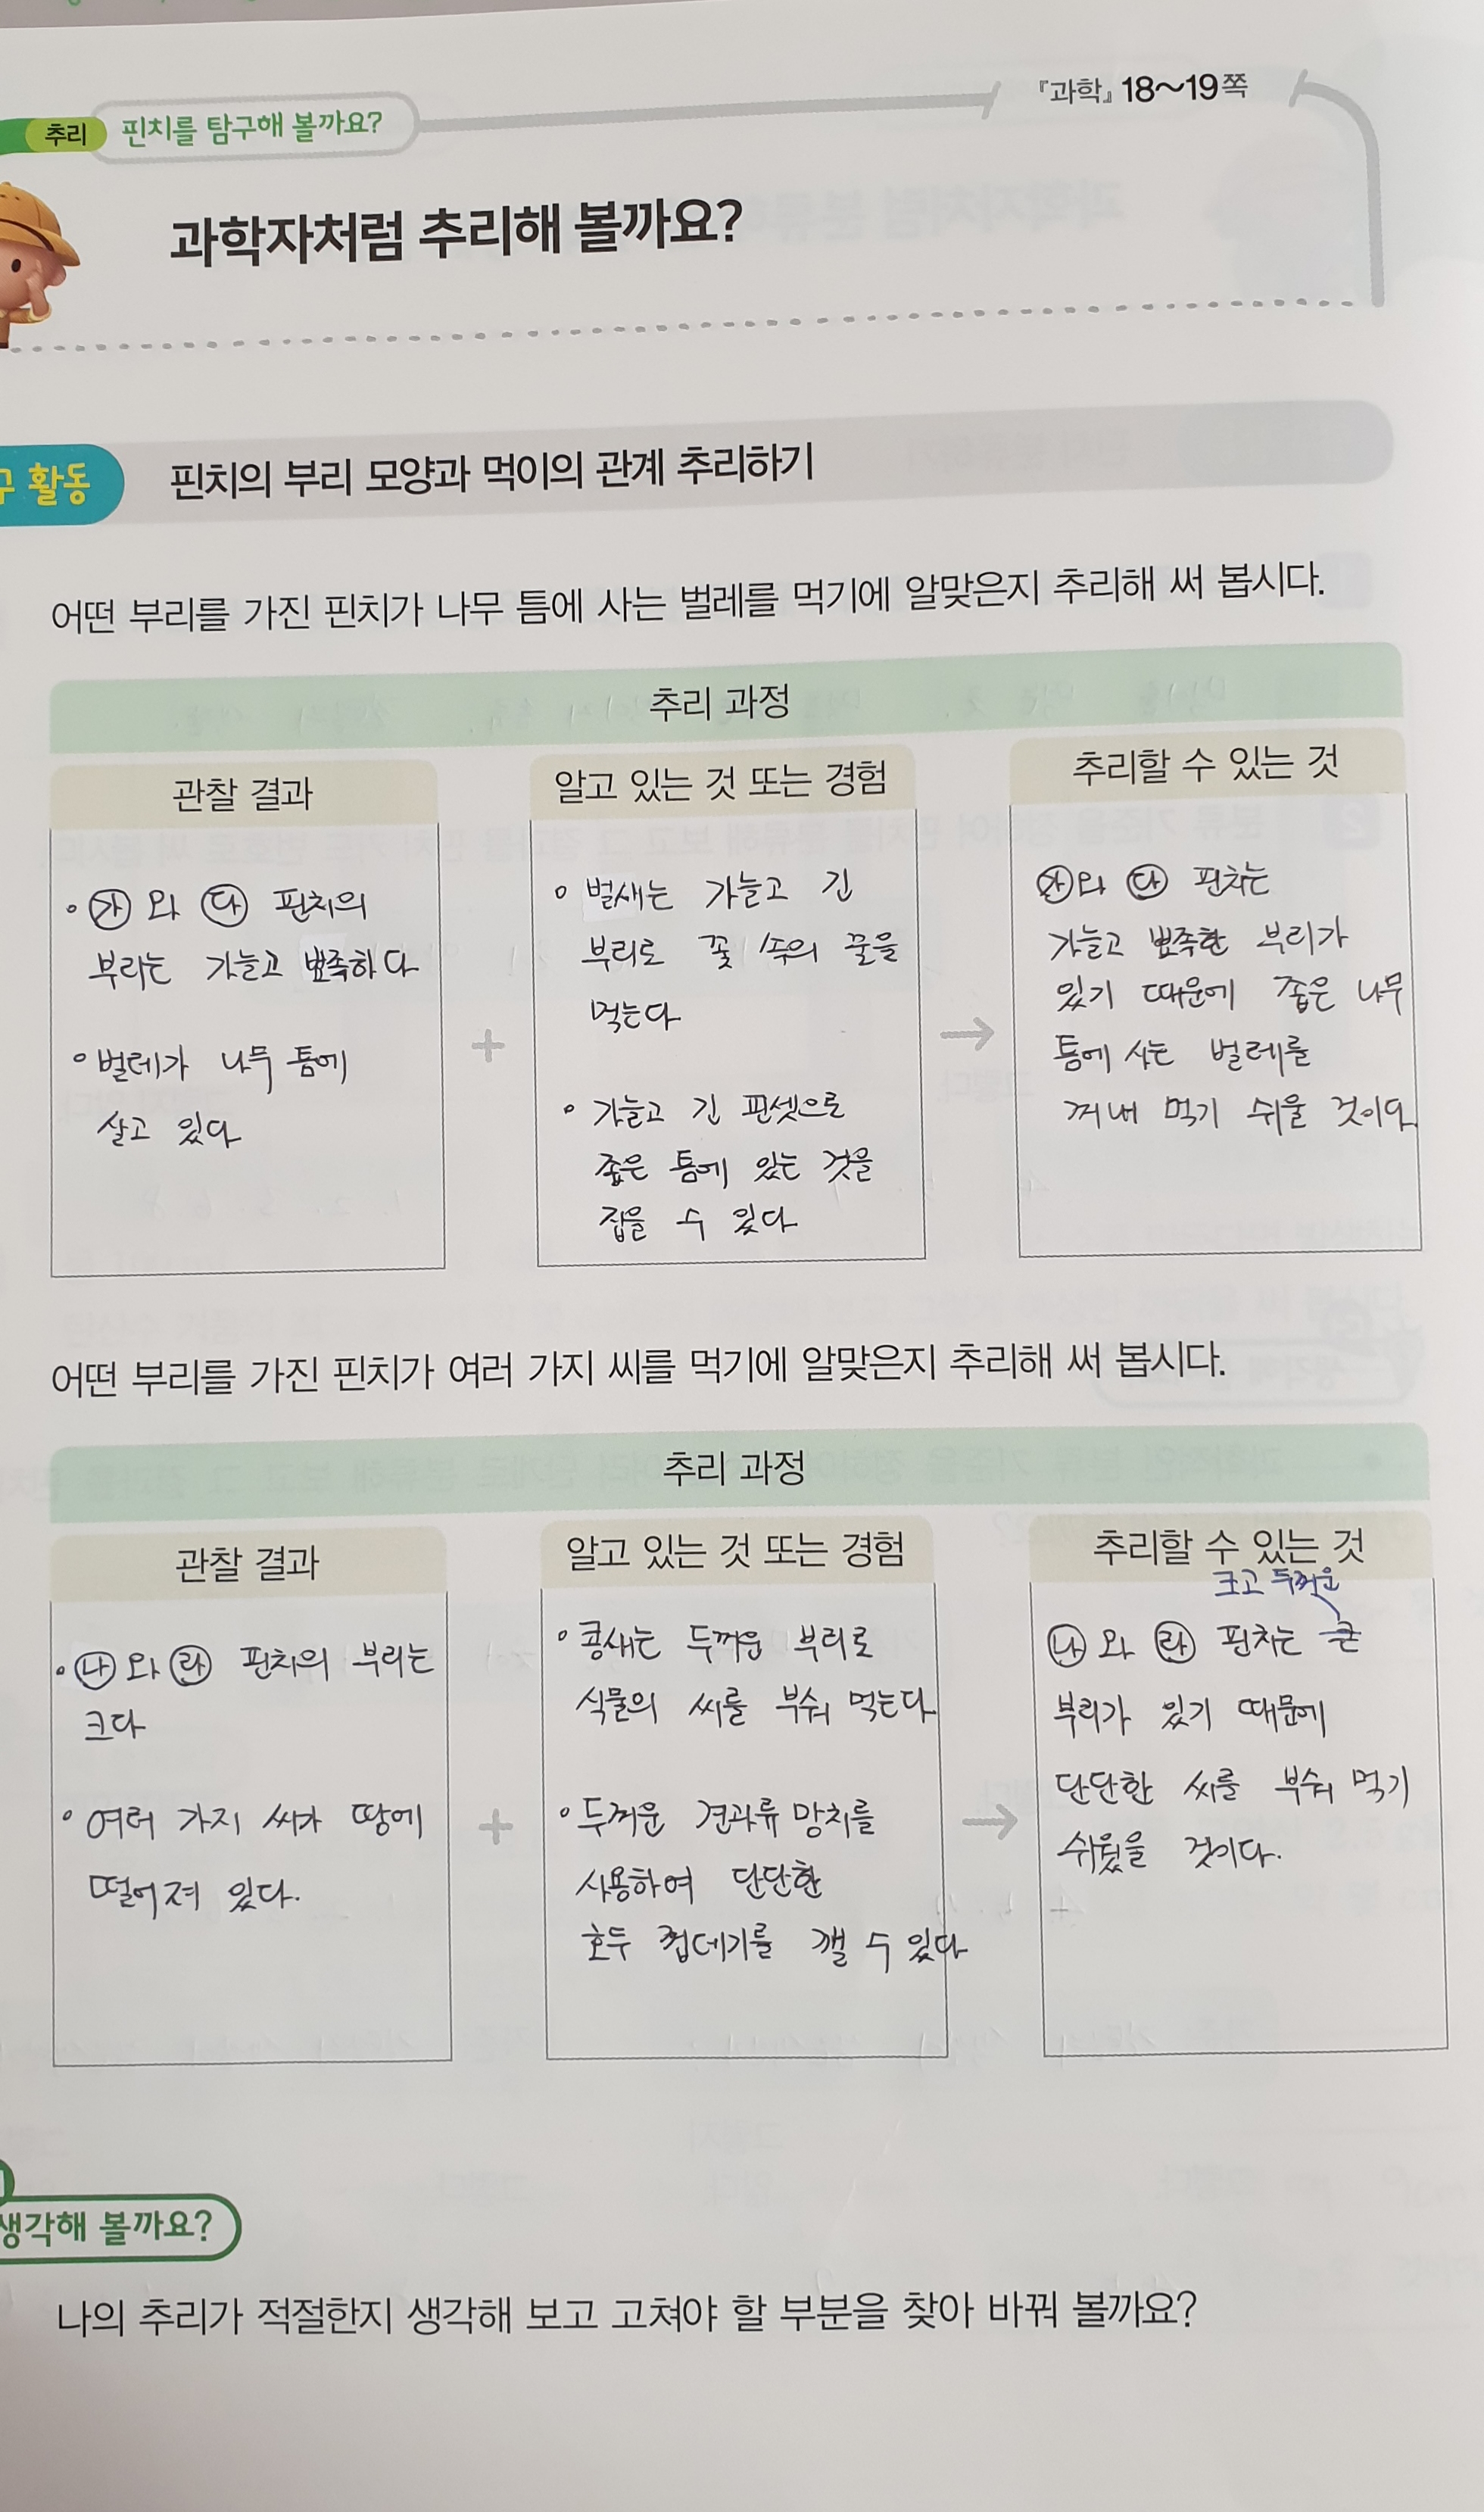 『과학』 18~19쪽
추리 핀치를 탐구해 볼까요?
과학자처럼 추리해 볼까요?
구 활동 핀치의 부리 모양과 먹이의 관계 추리하기
어떤 부리를 가진 핀치가 나무 틈에 사는 벌레를 먹기에 알맞은지 추리해 써 봅시다.
추리 과정
관찰 결과
㉮와 ㉰ 핀치의
부리는 가늘고 뾰족하다
벌레가 나무 틈에
살고 있다
+
알고 있는 것 또는 경험
벌새는 가늘고 긴
부리로 꽃 속의 꿀을
먹는다
가늘고 긴 핀셋으로
좁은 틈에 있는 것을
집을 수 있다
→
추리할 수 있는 것
㉮와 ㉰ 핀치는
가늘고 뾰족한 부리가
있기 때문에 좁은 나무
틈에 사는 벌레를
꺼내 먹기 쉬울 것이다.
어떤 부리를 가진 핀치가 여러 가지 씨를 먹기에 알맞은지 추리해 써 봅시다.
추리 과정
관찰 결과
㉯와 ㉱ 핀치의 부리는
크다
여러 가지 씨가 땅에
떨어져 있다.
+
알고 있는 것 또는 경험
콩새는 두꺼운 부리로
식물의 씨를 부숴 먹는다.
두꺼운 견과류 망치를
사용하여 단단한
호두 껍데기를 깰 수 있다
→
추리할 수 있는 것
크고 두꺼운
㉯와 ㉱ 핀치는 큰
부리가 있기 때문에
단단한 씨를 부숴 먹기
쉬웠을 것이다.
생각해 볼까요?
나의 추리가 적절한지 생각해 보고 고쳐야 할 부분을 찾아 바꿔 볼까요?